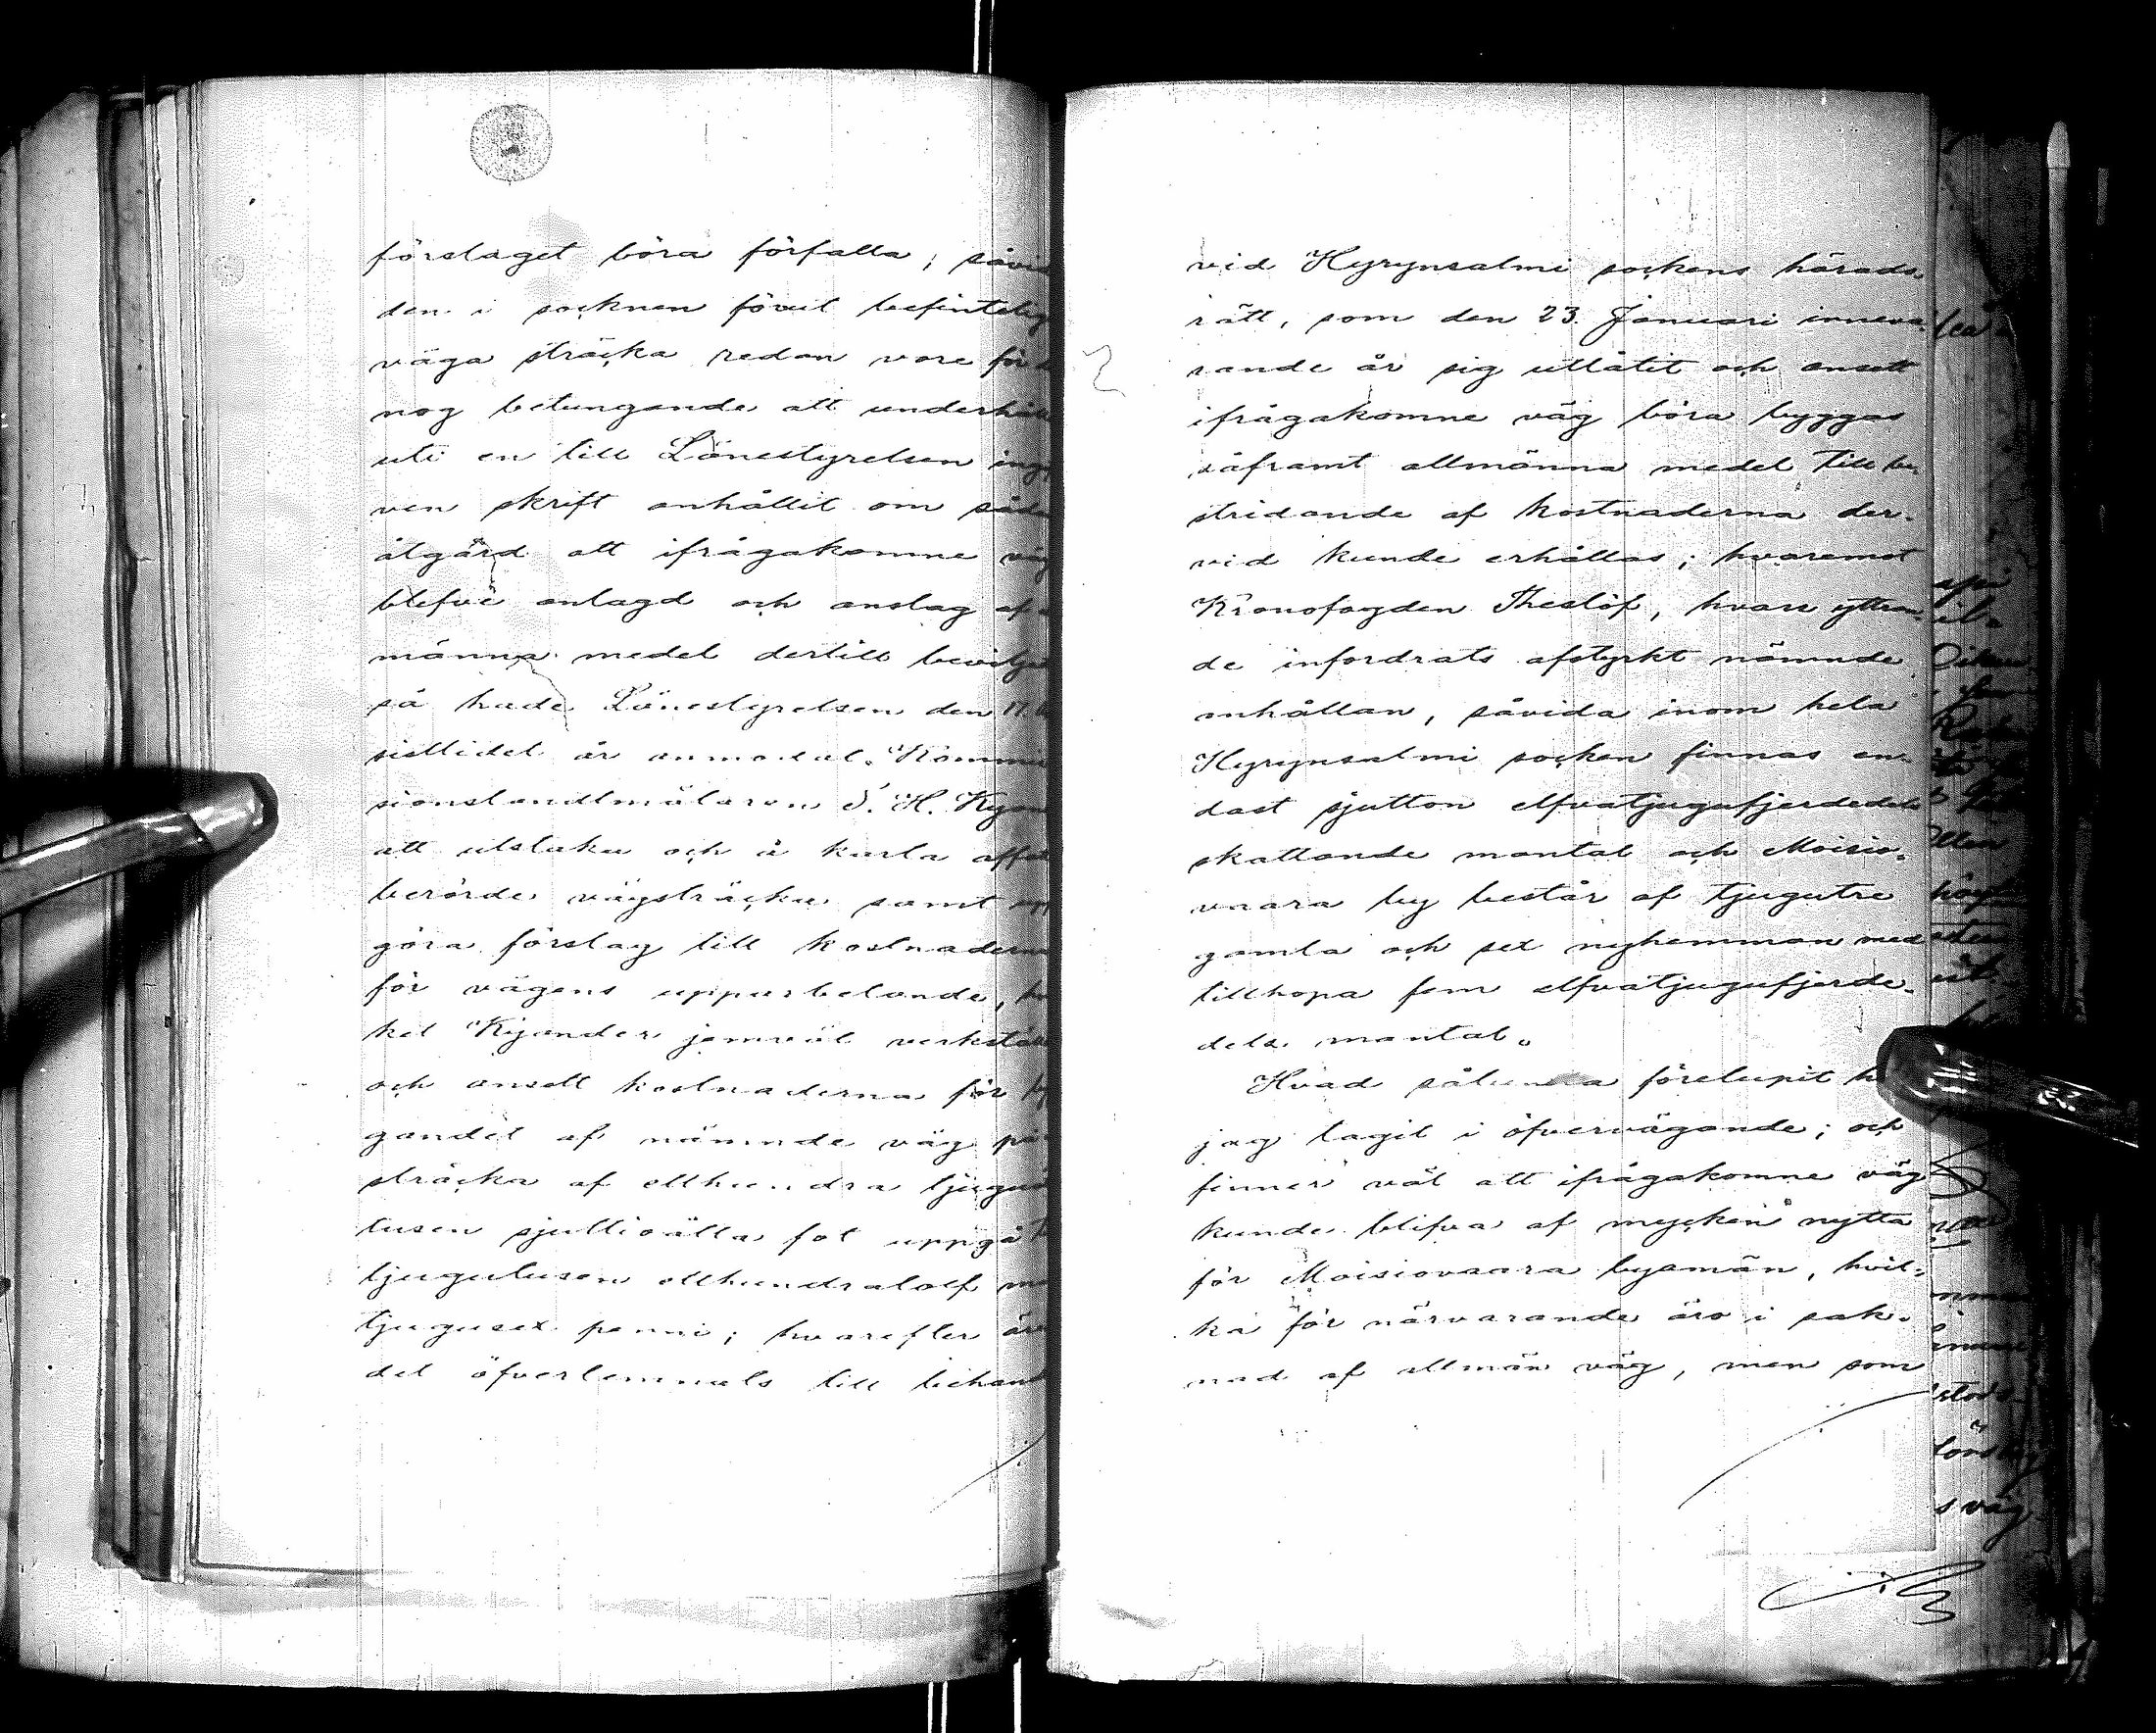 förslaget böra förfalla; såvid
den i socknen förut befintelig
väga sträcka redan vore för
nog betungande att underhåll
uti en till Länestyrelsen ing
ven skrift anhållit om såda
åtgärd att ifrågakomne väg
blefve anlagd och anslag af
männa medel dertill bevilja
så hade Länestyrelsen den 11.
sistlidet år anmodat Kommis
sionslandtmätaren S. H. Kyan
att utstaka och å karta affa
berörde vägsträcka samt upp
göra förslag till kostnaderna
för vägens upparbetande,
ket Kyander jemväl verkstäl
och ansett kostnaderna för by
gandet af nämnde väg på
sträcka af etthundra tjugu
tusen sjuttioåtta fot uppgå
tjugutusen etthundratolf m
tjugusex penni; hvarefter äre
det öfverlemnats till behan
vid Hyrynsalmi sockens härads
rätt, som den 23. Januari inneva
rande år sig utlåtit och ansett
ifrågakomne väg böra byggas
såframt allmänna medel till be
stridande af kostnaderna der-
vid kunde erhållas; hvaremot
Kronofogden Theslöf, hvars yttran-
de infordrats afstyrkt nämnde
anhållan, såvida inom hela
Hyrynsalmi socken finnas en-
dast sjutton elfvatjugufjerdedels
skattande mantal och Moisio-
vaara by består af tjugutre
gamla och sex nyhemman med
tillhopa fem elfvatjugufjerde-
dels mantal.
Hvad sålunda förelupit
jag tagit i öfvervägande; och
finner väl att ifrågakomne väg
kunde blifva af mycken nytta
för Moisiovaara byamän, hvil-
ka för närvarande äro i sak-
nad af allmän väg, men som